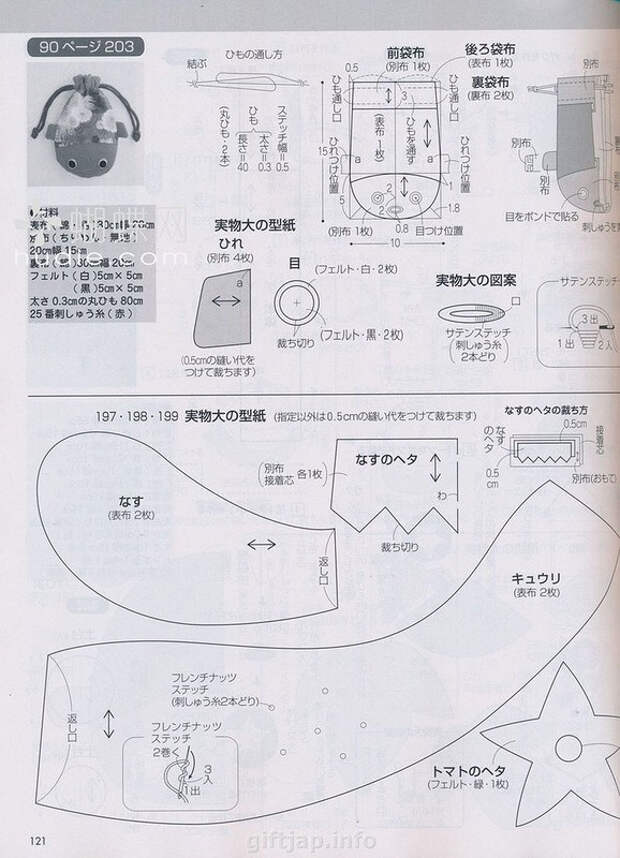 90ページ203
ひもの通し方
結ぶ
ステッチ幅=0.5
ひも 太さ=0.3 長さ=40
(丸ひも・2本)
前袋布
(別布 1枚)
後ろ袋布
(表布 1枚)
裏袋布
(裏布 2枚)
0.5
ひも通し口
ひも通し口
3
(表布 1枚)
ひもを通す
15
ひれつけ位置
ひれつけ位置
a
a
5
2
2
1
1.8
0.8
(別布 1枚)
目つけ位置
10
別布
別布
別布
目をボンドで貼る
刺しゅうを
材料
20cm幅 15cm
フェルト(白)5cm×5cm
(黒)5cm×5cm
太さ 0.3cmの丸ひも 80cm
25番刺しゅう糸(赤)
hudie.com
実物大の型紙
ひれ
(別布 4枚)
a
(0.5cmの縫い代を
つけて裁ちます)
目
(フェルト・白・2枚)
(フェルト・黒・2枚)
裁ち切り
実物大の図案
口
サテンステッチ
(刺しゅう糸
2本どり)
サテンステッチ
3出
1出
2入
197・198・199 実物大の型紙 (指定以外は0.5cmの縫い代をつけて裁ちます)
なす
(表布 2枚)
返し口
なすのヘタ
(別布
接着芯 各1枚)
わ
裁ち切り
なすのヘタの裁ち方
0.5cm
接着芯
なすのヘタ
0.5cm
別布(おもて)
キュウリ
(表布 2枚)
返し口
フレンチナッツ
ステッチ
(刺しゅう糸2本どり)
フレンチナッツ
ステッチ
2巻く
3入
1出
トマトのヘタ
(フェルト・緑・1枚)
121
giftjap.info